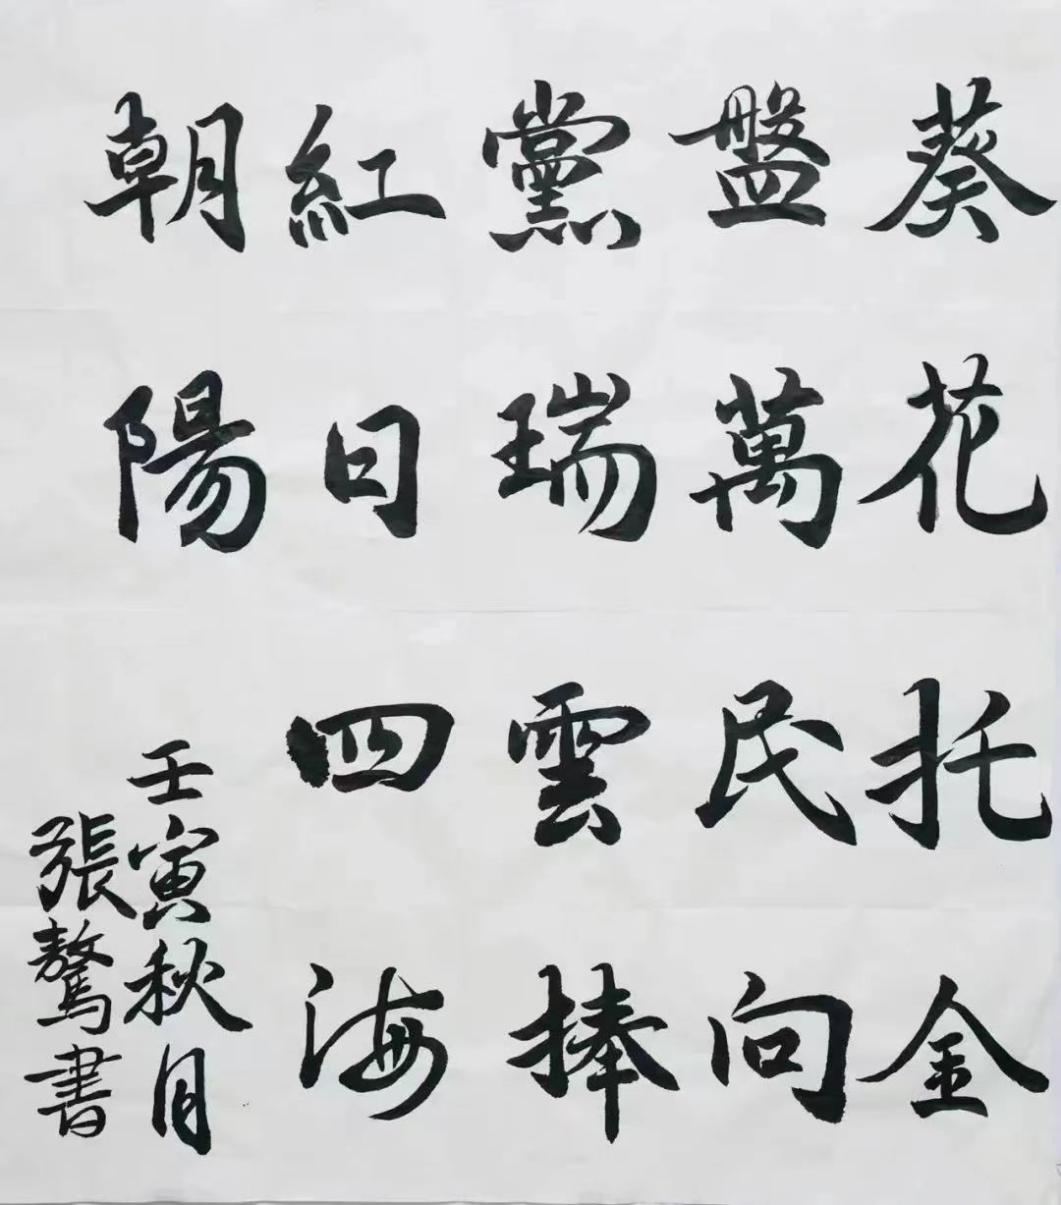 葵花托金
盤萬民向
黨瑞雲捧
紅日四海
朝陽
壬寅秋月
張驁書